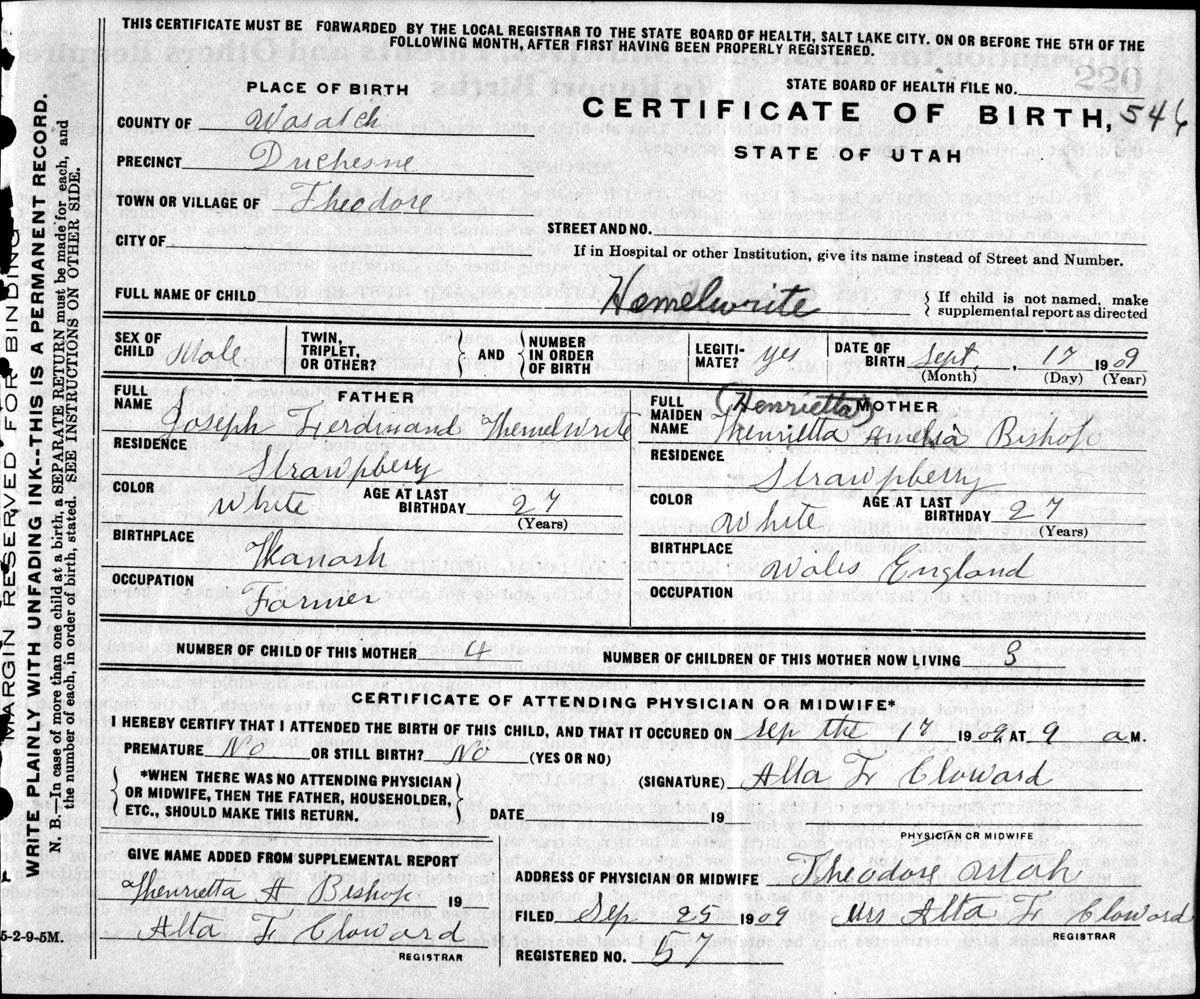 THIS CERTIFICATE MUST BE FORWARDED BY THE LOCAL REGISTRAR TO THE STATE BOARD OF HEALTH, SALT LAKE CITY. ON OR BEFORE THE 5TH OF THE
FOLLOWING MONTH, AFTER FIRST HAVING BEEN PROPERLY REGISTERED.
220
STATE BOARD OF HEALTH FILE NO.
PLACE OF BIRTH
CERTIFICATE OF BIRTH, 546
STATE OF UTAH
COUNTY OF Wasatch
PRECINCT Duchesne
TOWN OR VILLAGE OF Theodore
STREET AND NO.
CITY OF
If in Hospital or other Institution, give its name instead of Street and Number.
FULL NAME OF CHILD Hemelwrite { If child is not named, make
supplemental report as directed
SEX OF CHILD Male TWIN, TRIPLET, OR OTHER? AND NUMBER IN ORDER OF BIRTH LEGITI-MATE? yes DATE OF BIRTH Sept, 17 1909
(Month) (Day) (Year)
FATHER
FULL NAME Joseph Ferdinand Themelwrite
RESIDENCE
Strawpberry
COLOR White AGE AT LAST BIRTHDAY 27
(Years)
BIRTHPLACE
Kanash
OCCUPATION
Farmer
(Henrietta) MOTHER
FULL MAIDEN NAME Thenrietta Amelia Bishop
RESIDENCE
Strawpberry
COLOR White AGE AT LAST BIRTHDAY 27
(Years)
BIRTHPLACE
Wales England
OCCUPATION
NUMBER OF CHILD OF THIS MOTHER 4 NUMBER OF CHILDREN OF THIS MOTHER NOW LIVING 3
CERTIFICATE OF ATTENDING PHYSICIAN OR MIDWIFE*
I HEREBY CERTIFY THAT I ATTENDED THE BIRTH OF THIS CHILD, AND THAT IT OCCURED ON Sep the 17 1909 AT 9 a M.
PREMATURE No OR STILL BIRTH? No (YES OR NO)
*WHEN THERE WAS NO ATTENDING PHYSICIAN
OR MIDWIFE, THEN THE FATHER, HOUSEHOLDER,
ETC., SHOULD MAKE THIS RETURN.
(SIGNATURE) Alta F Cloward
DATE 19
PHYSICIAN OR MIDWIFE
GIVE NAME ADDED FROM SUPPLEMENTAL REPORT
Thenrietta A Bishop 19
Alta F Cloward
REGISTRAR
ADDRESS OF PHYSICIAN OR MIDWIFE Theodore Utah
FILED Sep 29 1909 Mrs Alta F Cloward
REGISTRAR
REGISTERED NO. 57
5-2-9-5M.
MARGIN RESERVED FOR BINDING
WRITE PLAINLY WITH UNFADING INK--THIS IS A PERMANENT RECORD.
N. B.--In case of more than one child at a birth, a SEPARATE RETURN must be made for each, and
the number of each, in order of birth, stated. SEE INSTRUCTIONS ON OTHER SIDE.